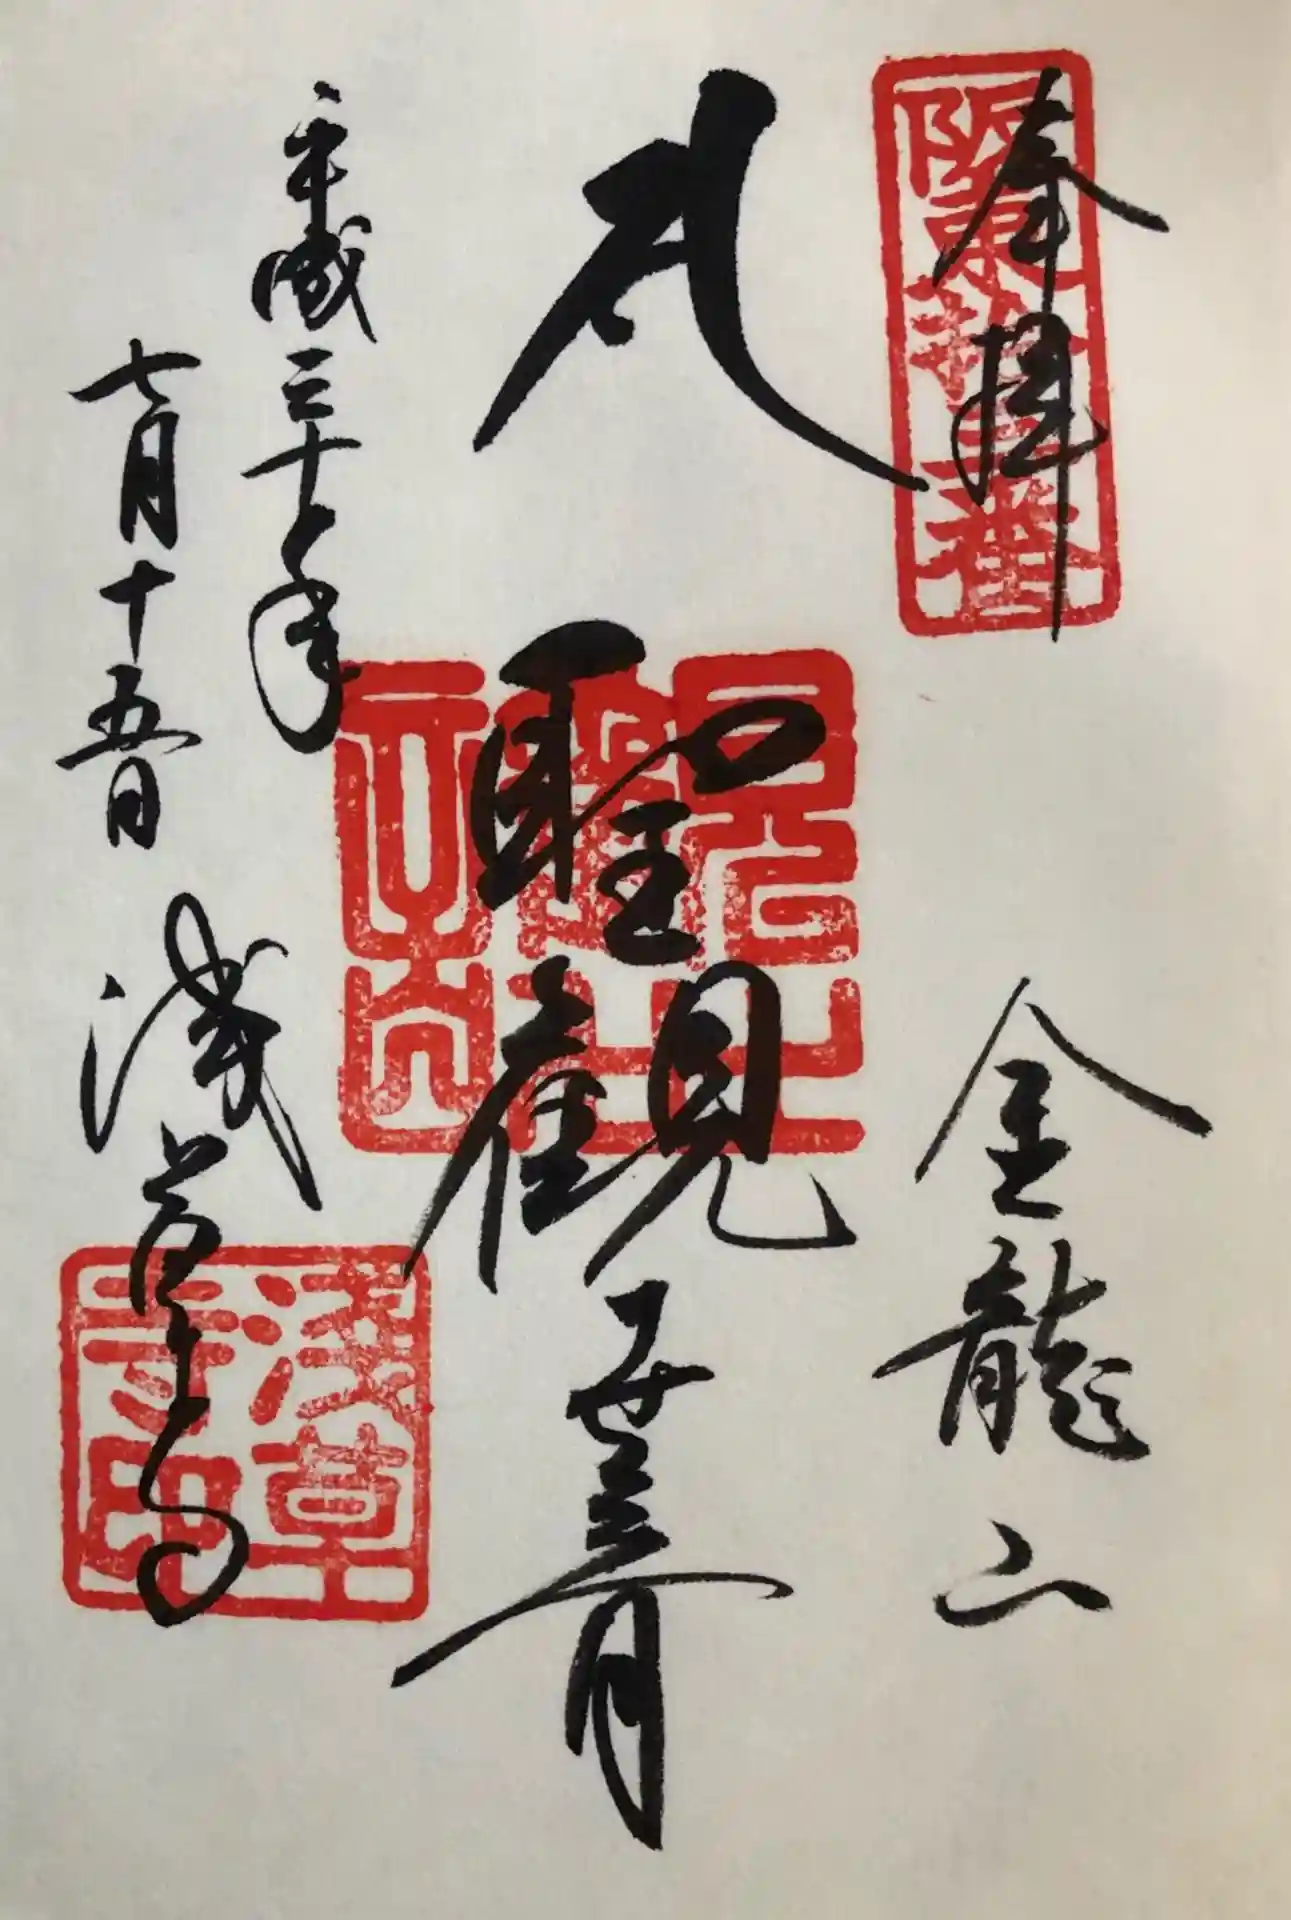 奉拝
阪東拾三番
金龍山
聖観世音
平成三十年
七月十五日
浅草寺
浅草寺印